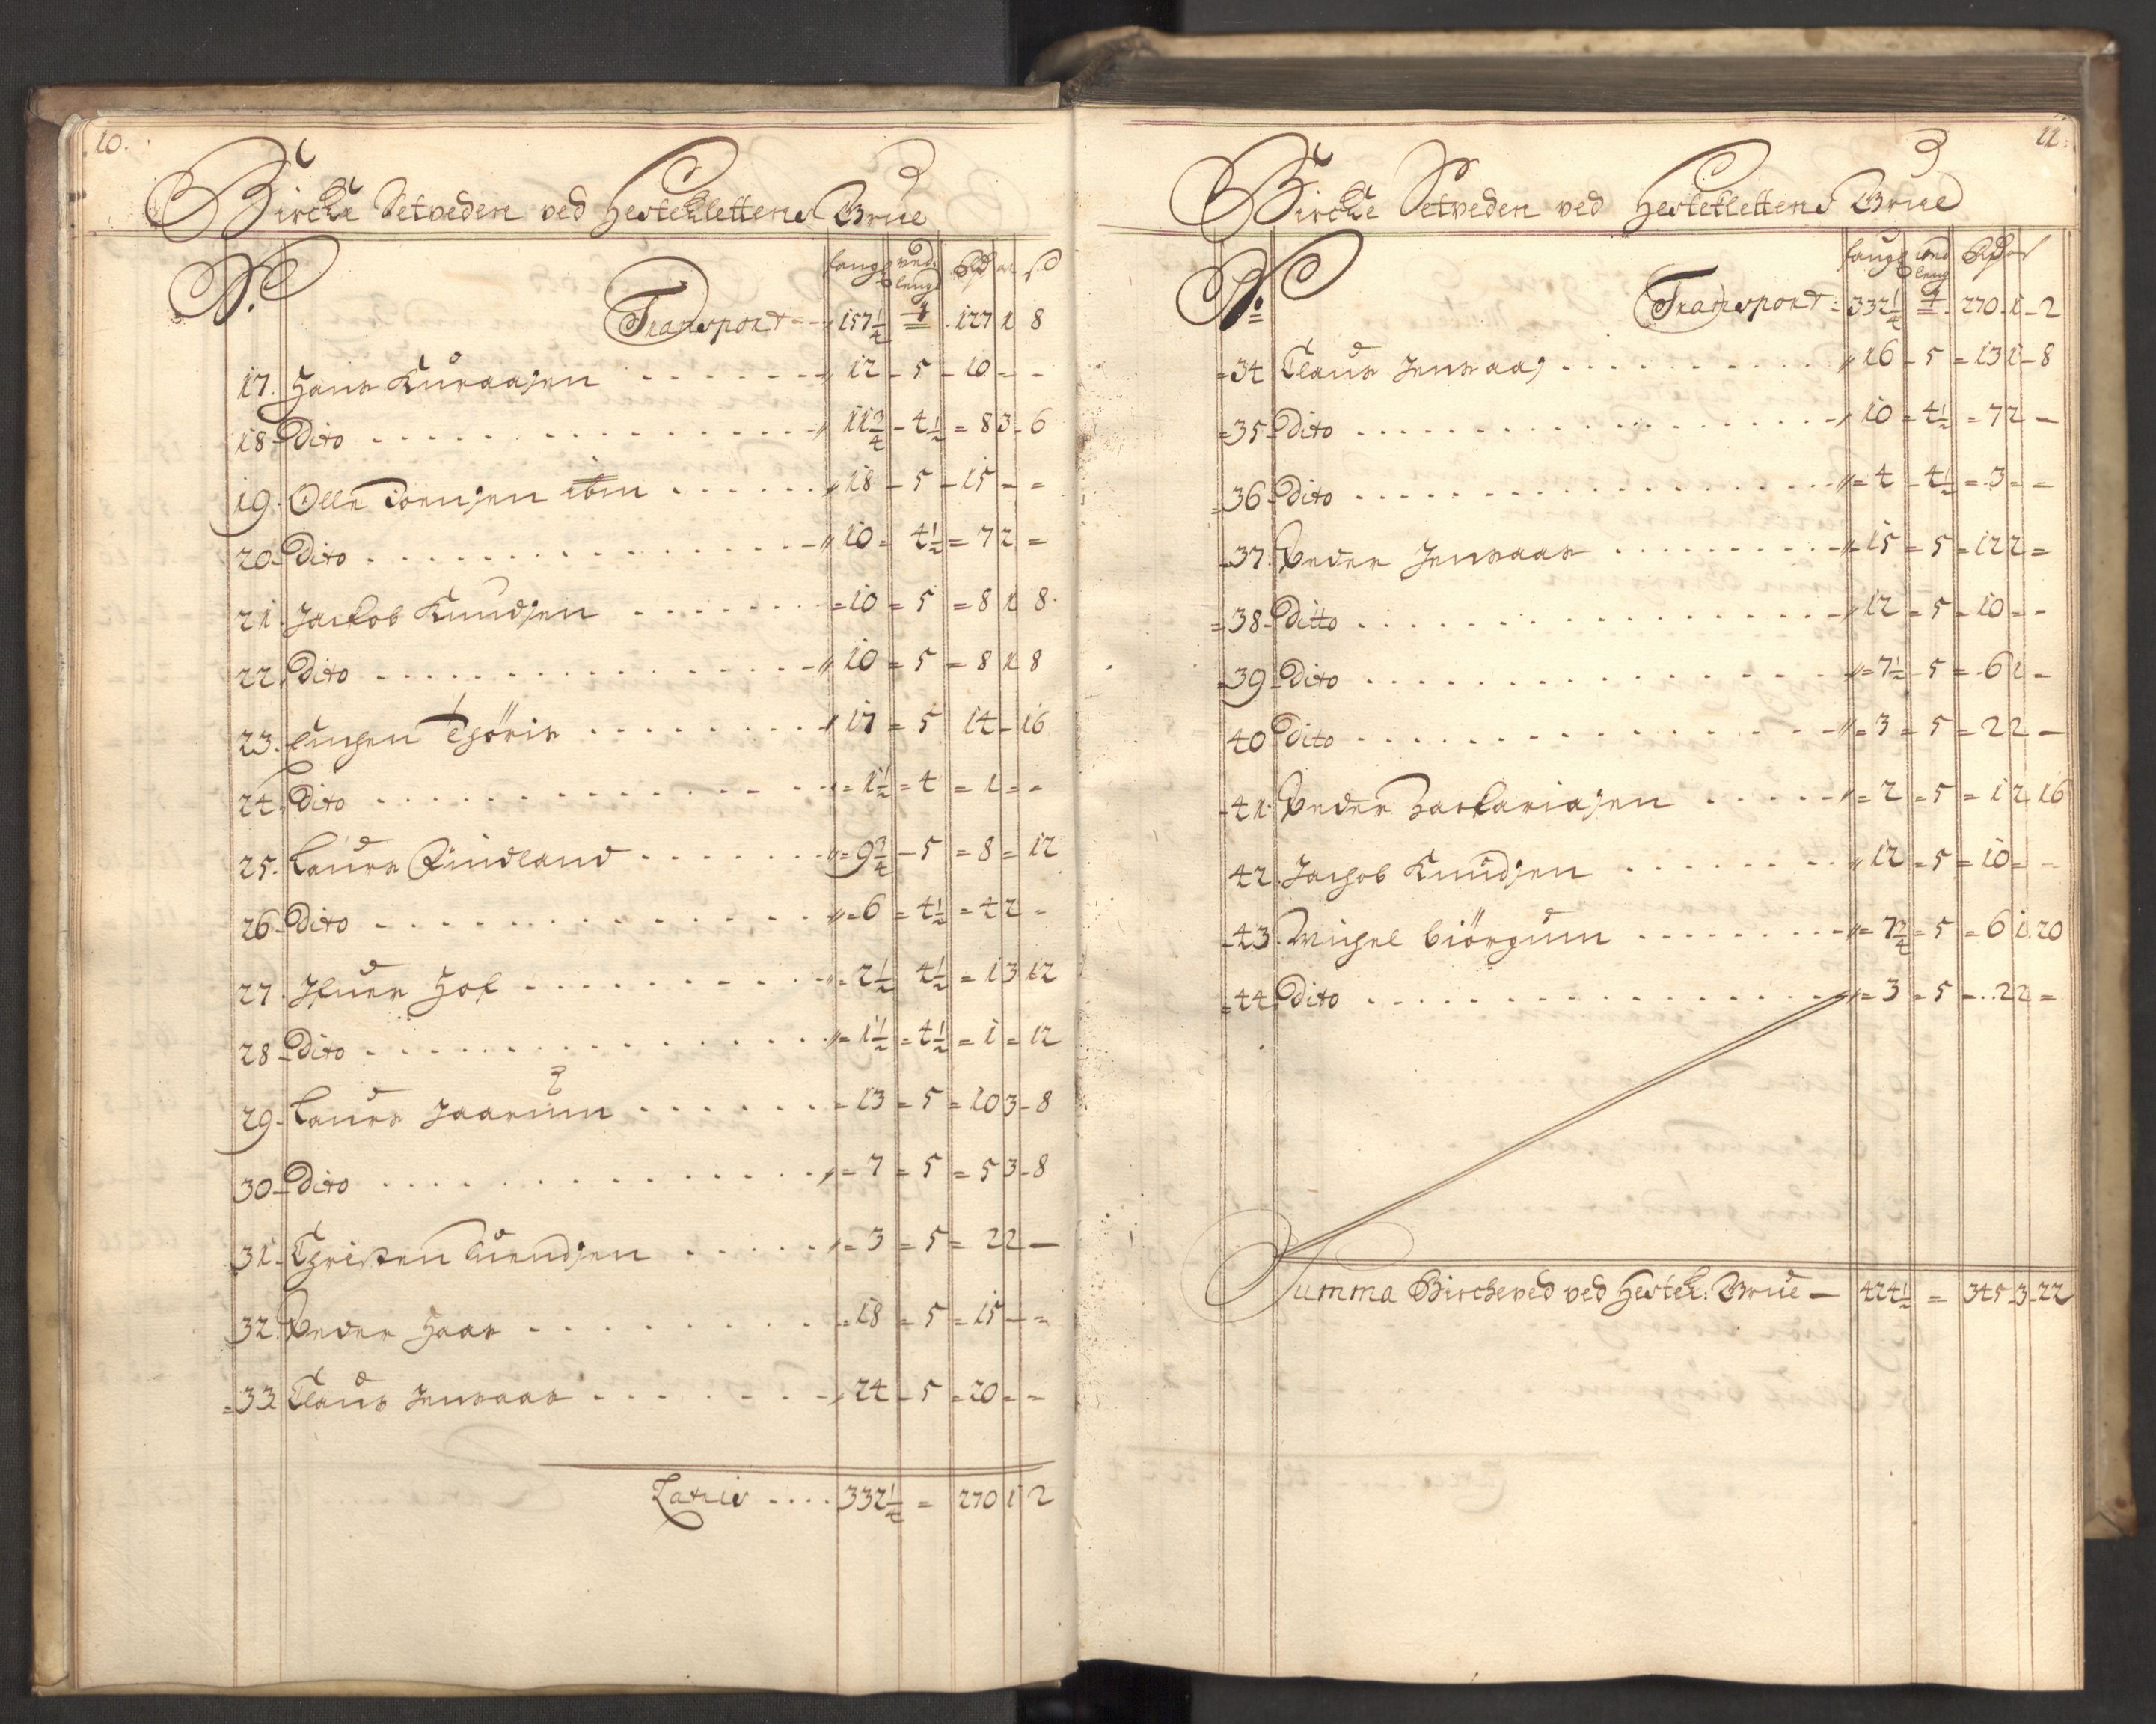 10.
Bircke Setveden ved Hesteklettens Brue
N.º
faugr ved: lengd Rd ort sd
Transport - - 157 1/4 4 - 127 1 8
17. Hans Kuraasen - - - - 12 - 5 - 10 - -
18 - Dito - - - - 11 3/4 - 4 1/2 = 8 3 - 6
19. Olle ibm - - - - 18 - 5 - 15 - =
20 - Dito - - - - 10 = 4 1/2 = 7 2 =
21. Jackob Knudsen - - - - = 10 = 5 = 8 1 8
22. Dito - - - - 10 = 5 = 8 1 8
23. Thöris - - - - 17 = 5 14 - 16
24. Dito - - - - = 1 1/2 = 4 = 1 = =
25. Laurs Rindland - - - - = 9 3/4 - 5 = 8 = 12
26 - Dito - - - - = 6 = 4 1/2 = 4 2 -
27. Ifuer Hof - - - - = 2 1/2 4 1/2 = 1 3 12
28 - Dito - - - - = 1 1/2 = 4 1/2 = 1 = 12
29. Laurs Jaarum - - - - = 13 = 5 = 10 3 - 8
30 - Dito - - - - = 7 = 5 = 5 3 - 8
31. Christen - - - - = 3 = 5 = 2 2 -
32. Peder Haar - - - - = 18 = 5 = 15 - =
= 33. Claus Jensaas - - - - 24 - 5 = 20 = =
Latus - - - - 332 1/4 = 270 1 2
11.
Bircke Setveden ved Hesteklettens Brue
N.º
faugr ved lengd Rd ort
Transport: 332 1/4 4 - 270 - 1 - 2
= 34 Claus Jensaas - - - - 16 - 5 = 13 1 - 8
= 35 - Dito - - - - 10 = 4 1/2 = 7 2 -
= 36 - Dito - - - - = 4 - 4 1/2 = 3 = =
- 37. Peder Jensaas - - - - = 15 = 5 = 12 2 =
= 38 - Ditto - - - - 12 = 5 - 10 = -
- 39 - Dito - - - - = 7 1/2 - 5 = 6 1 -
- 40 Dito - - - - = 3 = 5 = 2 2 -
- 41. Peder Zackariasen - - - - = 2 = 5 = 1 2 16
- 42. Jachob Knudsen - - - - 12 = 5 = 10 = -
- 43. Michel biörgum - - - - = 7 3/4 = 5 = 6 1 20
= 44. Dito - - - - = 3 = 5 = 2 2 =
Summa Bircheved ved Hestek: Brue - 424 1/2 = 345 - 3 - 22